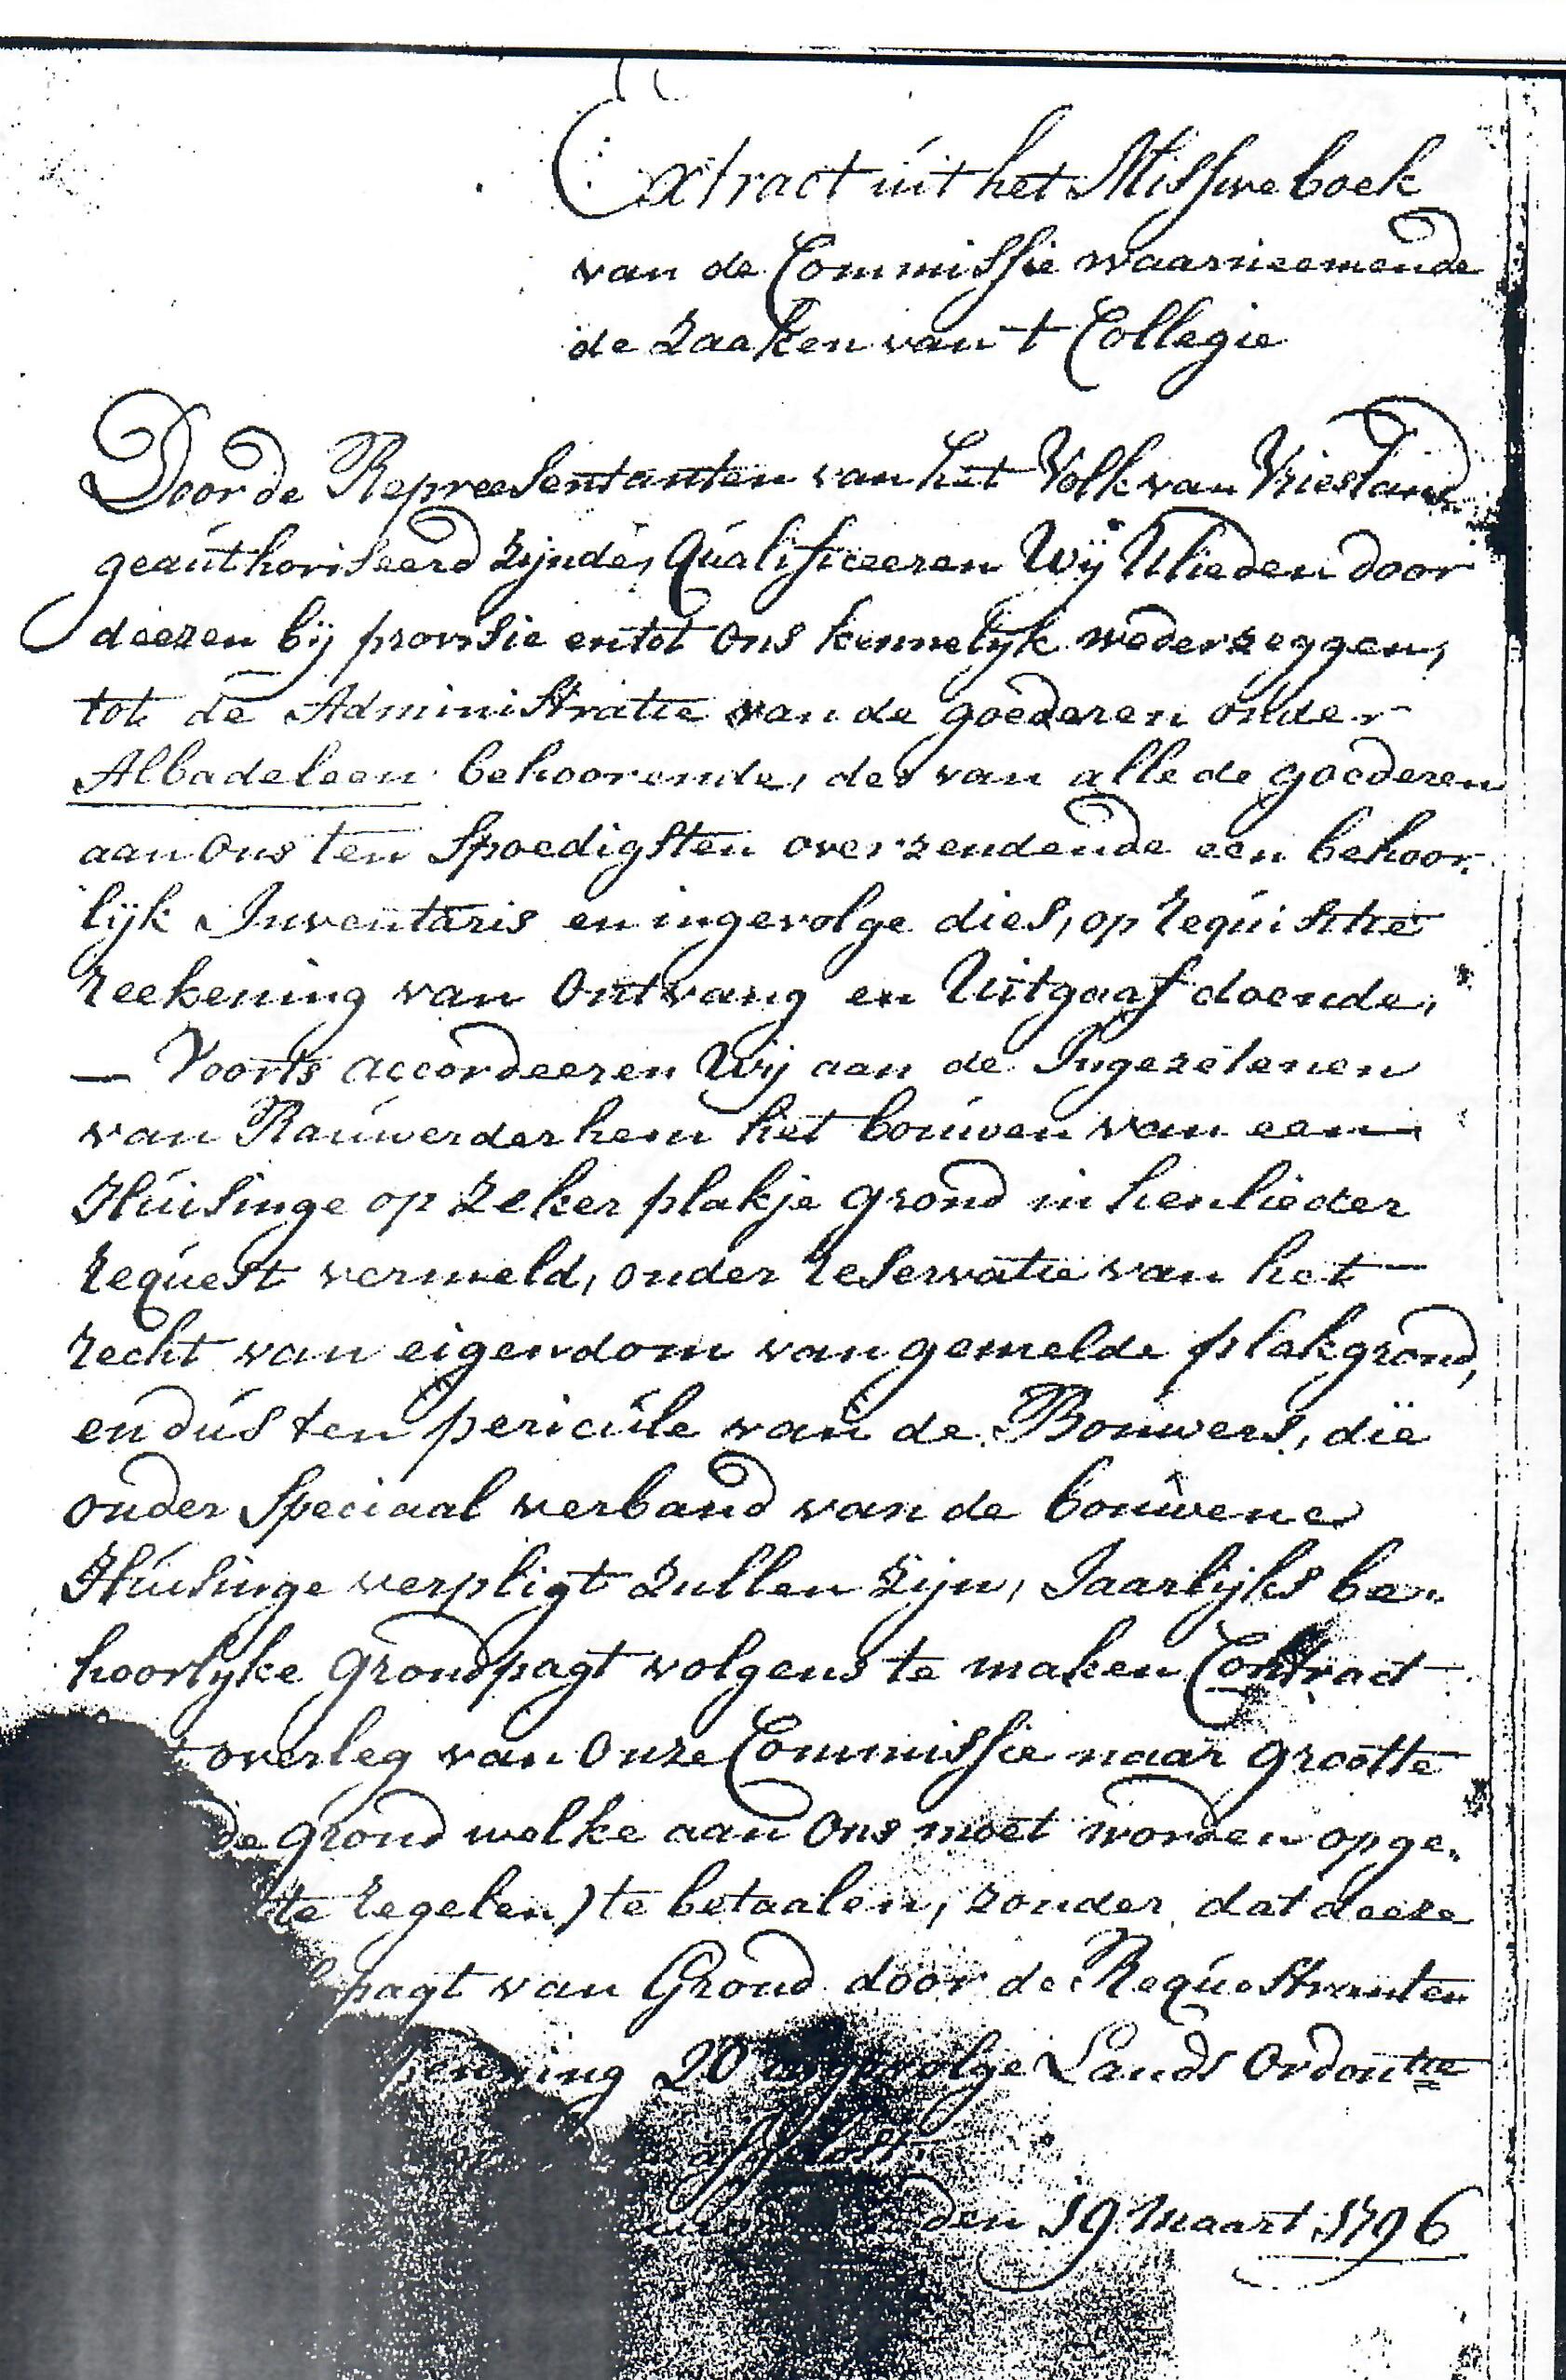 Extract uit het Missive boek
van de Commissie waarneemende
de Zaaken van 't Collegie
Door de Repreesentanten van het Volk van Vriesland
geauthoriseerd zijnde, Qualificeeren Wij Ulieden door
deezen bij provisie en tot Ons kennelijk wederzeggen,
tot de Administratie van de goederen onder
Albadeleen behoorende, des van alle de goederen
aan Ons ten Spoedigsten overzendende een behoor
lijk Inventaris en ingevolge dies, op requisitie
reekening van Ontvang en Uitgaaf doende,
— Voorts accordeeren Wij aan de Ingezetenen
van Rauwerderhem het bouwen van een
Huisinge op zeker plakje grond in henlieder
request vermeld, onder reservatie van het —
recht van eigendom van gemelde plak grond,
en dus ten pericule van de Bouwers, die
onder Speciaal verband van de bouwene
Huisinge verpligt zullen zijn, Jaarlijks be-
hoorlyke grondpagt volgens te maken Contract
overleg van Onze Commissie naar grootte
de grond welke aan Ons moet worden opge-
te regelen) te betaalen, zonder dat deeze
pagt van Grond door de Requestranten
penning 20 ingevolge Lands Ordontie
den 19 Maart 1796